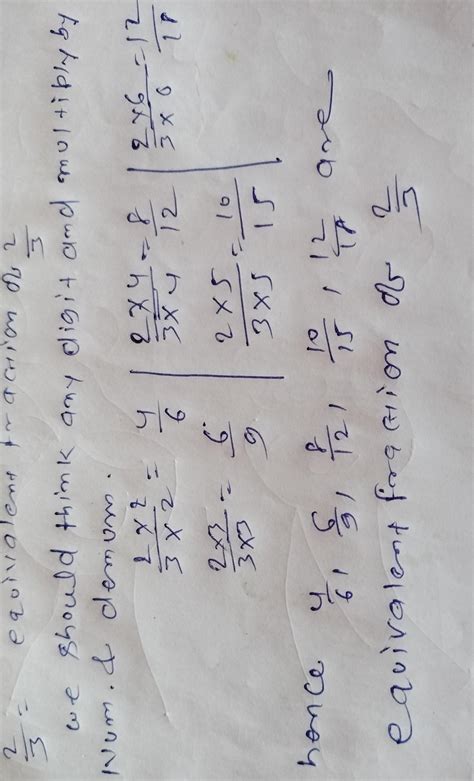 2/3 = equivalent fraction of 2/3
we should think any digit and multiply by
Num. & denum.
2×2/3×2 = 4/6 | 2×4/3×4 = 8/12 | 2×6/3×6 = 12/18
2×3/3×3 = 6/9 | 2×5/3×5 = 10/15
hence 4/6, 6/9, 8/12, 10/15, 12/18 are
equivalent fraction of 2/3